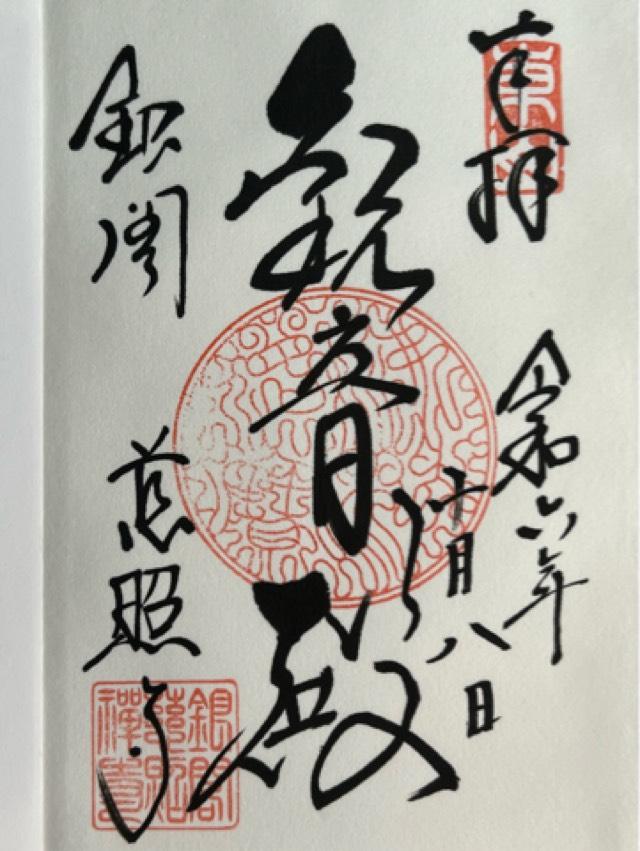 奉拝
令和六年
十月八日
観音殿
銀閣
慈照寺
銀閣
慈照
禪寺